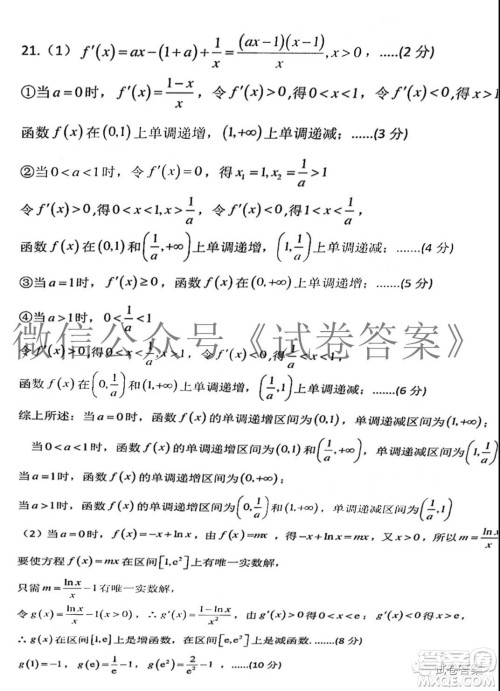 21.（1）f′(x)=ax−(1+a)+1/x=(ax−1)(x−1)/x, x>0，.....(2 分)
①当a=0时，f′(x)=(1−x)/x，令f′(x)>0,得0<x<1，令f′(x)<0,得x>1
函数f(x)在(0,1)上单调递增，(1,+∞)上单调递减；......(3 分)
②当0<a<1时，令f′(x)=0，得x₁=1,x₂=1/a>1
令f′(x)>0,得0<x<1,x>1/a，令f′(x)<0,得1<x<1/a，
函数f(x)在(0,1)和(1/a,+∞)上单调递增，(1,1/a)上单调递减；.......(4 分)
③当a=1时，f′(x)≥0，函数f(x)在(0,+∞)上单调递增；......(5 分)
④当a>1时，0<1/a<1
令f′(x)>0,得0<x<1/a,x>1，令f′(x)<0,得1/a<x<1,
函数f(x)在(0,1/a)和(1,+∞)上单调递增，(1/a,1)上单调递减；......(6 分)
微信公众号《试卷答案》
综上所述：当a=0时，函数f(x)的单调递增区间为(0,1)，单调递减区间为(1,+∞)；
当0<a<1时，函数f(x)的单调递增区间为(0,1)和(1/a,+∞)，单调递减区间为(1,1/a)；
当a=1时，函数f(x)的单调递增区间为(0,+∞)；
当a>1时，函数f(x)的单调递增区间为(0,1/a)和(1,+∞)，单调递减区间为(1/a,1)
（2）当a=0时，f(x)=−x+lnx，由f(x)=mx，得−x+lnx=mx，又x>0，所以m=lnx/x−1
要使方程f(x)=mx在区间[1,e²]上有唯一实数解，
只需m=lnx/x−1有唯一实数解，
令g(x)=lnx/x−1(x>0)，∴g′(x)=(1−lnx)/x²，由g′(x)>0得0<x<e；g′(x)<0得x>e，
∴g(x)在区间[1,e]上是增函数，在[e,e²]上是减函数.......(8 分)
g(1)=−1，g(e)=1/e−1，g(e²)=2/e²−1，......(10 分)
试卷答案